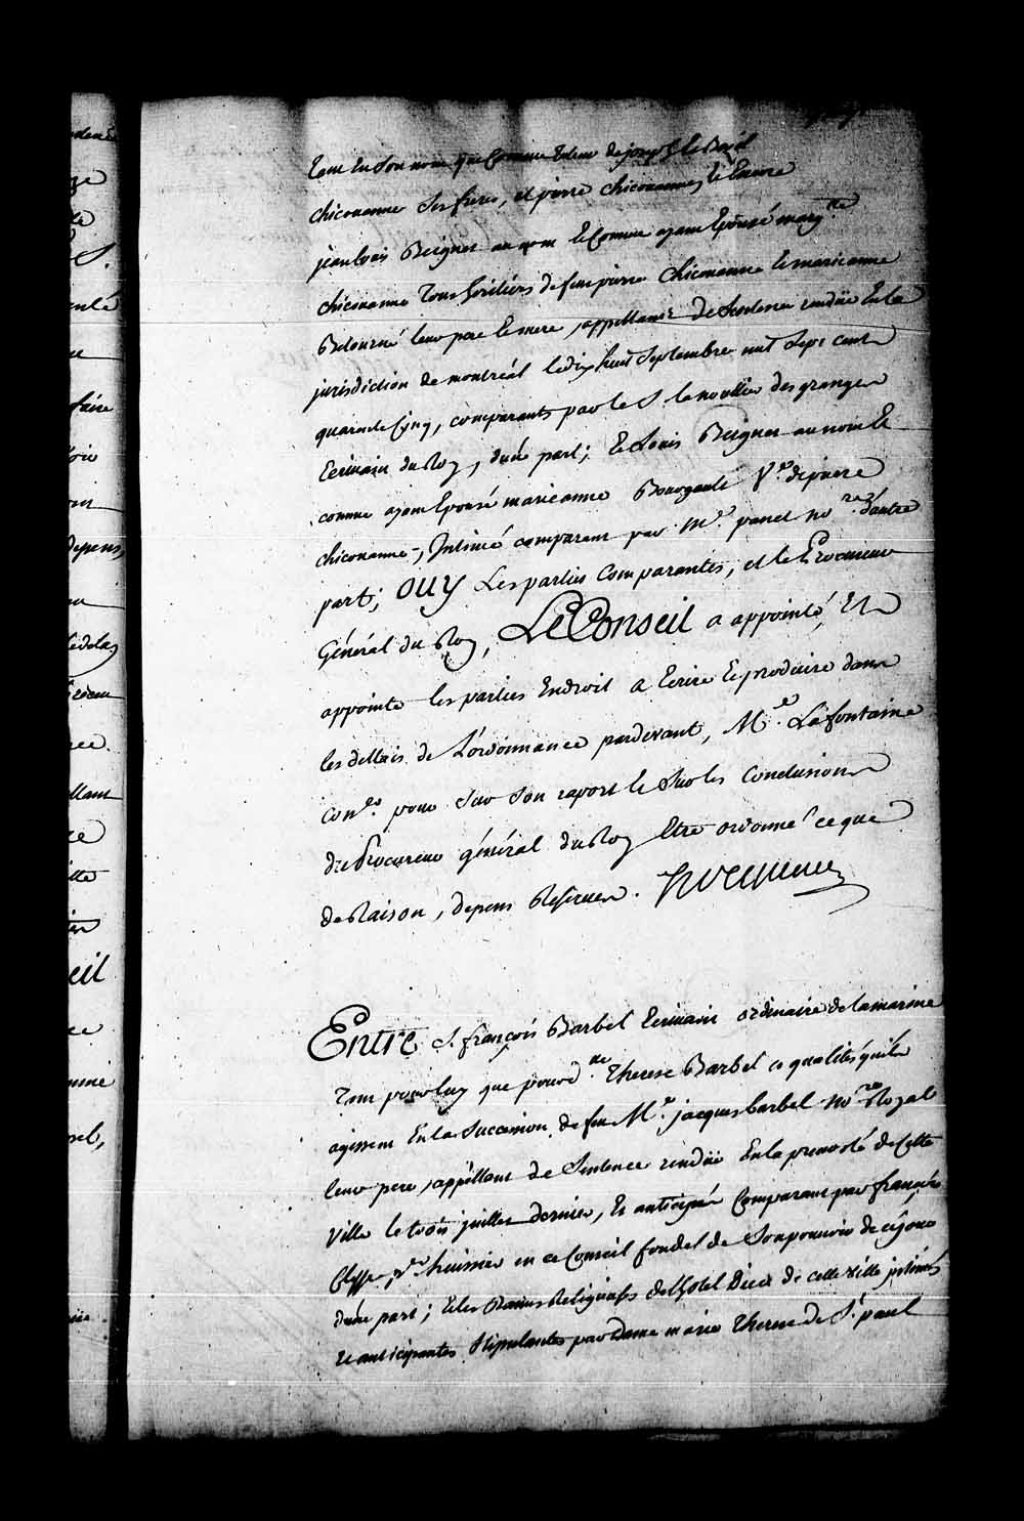 tant En Son nom que Comme tuteur de joseph le Basil
chicouanne Ses freres, et pierre chicouanne, et Encore
jean louis Beignet au nom et comme ayant Epousé marg.te
chicouanne tous heritiers de feu pierre chicouanne et marieanne
Betourné leur pere et mere, appellants de Sentence rendüe En la
jurisdiction de montréal le dix huit Septembre mil Sept cent
quarante Cinq, comparants par le S. la nouillier des granges
Ecrivain du Roy, d'une part; Et Louis Beignet au nom et
comme ayant Epousé marieanne Bourgault V.e de pierre
chicouanne, Intimé comparant par M.e panet no.re d'autre
part; OUY Les parties Comparantes, et le Procureur
Général du Roy, Le Conseil a appointé, Et
appointe les parties En droit a Ecrire et produire dans
les dellais de L'ordonnance pardevant, M.e Lafontaine
con.er pour Sur Son raport et Sur les Conclusions
du Procureur général du Roy Etre ordonné ce que
de Raison, depens Reservez. hocquart

Entre S. françois Barbel Ecrivain ordinaire de la marine
tant pour luy que pour d.lle Therese Barbel es qualités qu'ils
agissent En la Succession de feu M.e jacques barbel no.re Royal
leur pere, appellant de Sentence rendüe En la prevosté de Cette
Ville le trois juillet dernier, Et anticipé Comparant par françois
Clesse p.er huissier en ce Conseil fondé de Son pouvoir de ce jour
d'une part; et les Dames Religieuses de l'hotel Dieu de cette ville intimés
et anticipantes Stipulantes par Dame marie Therese de S.t paul